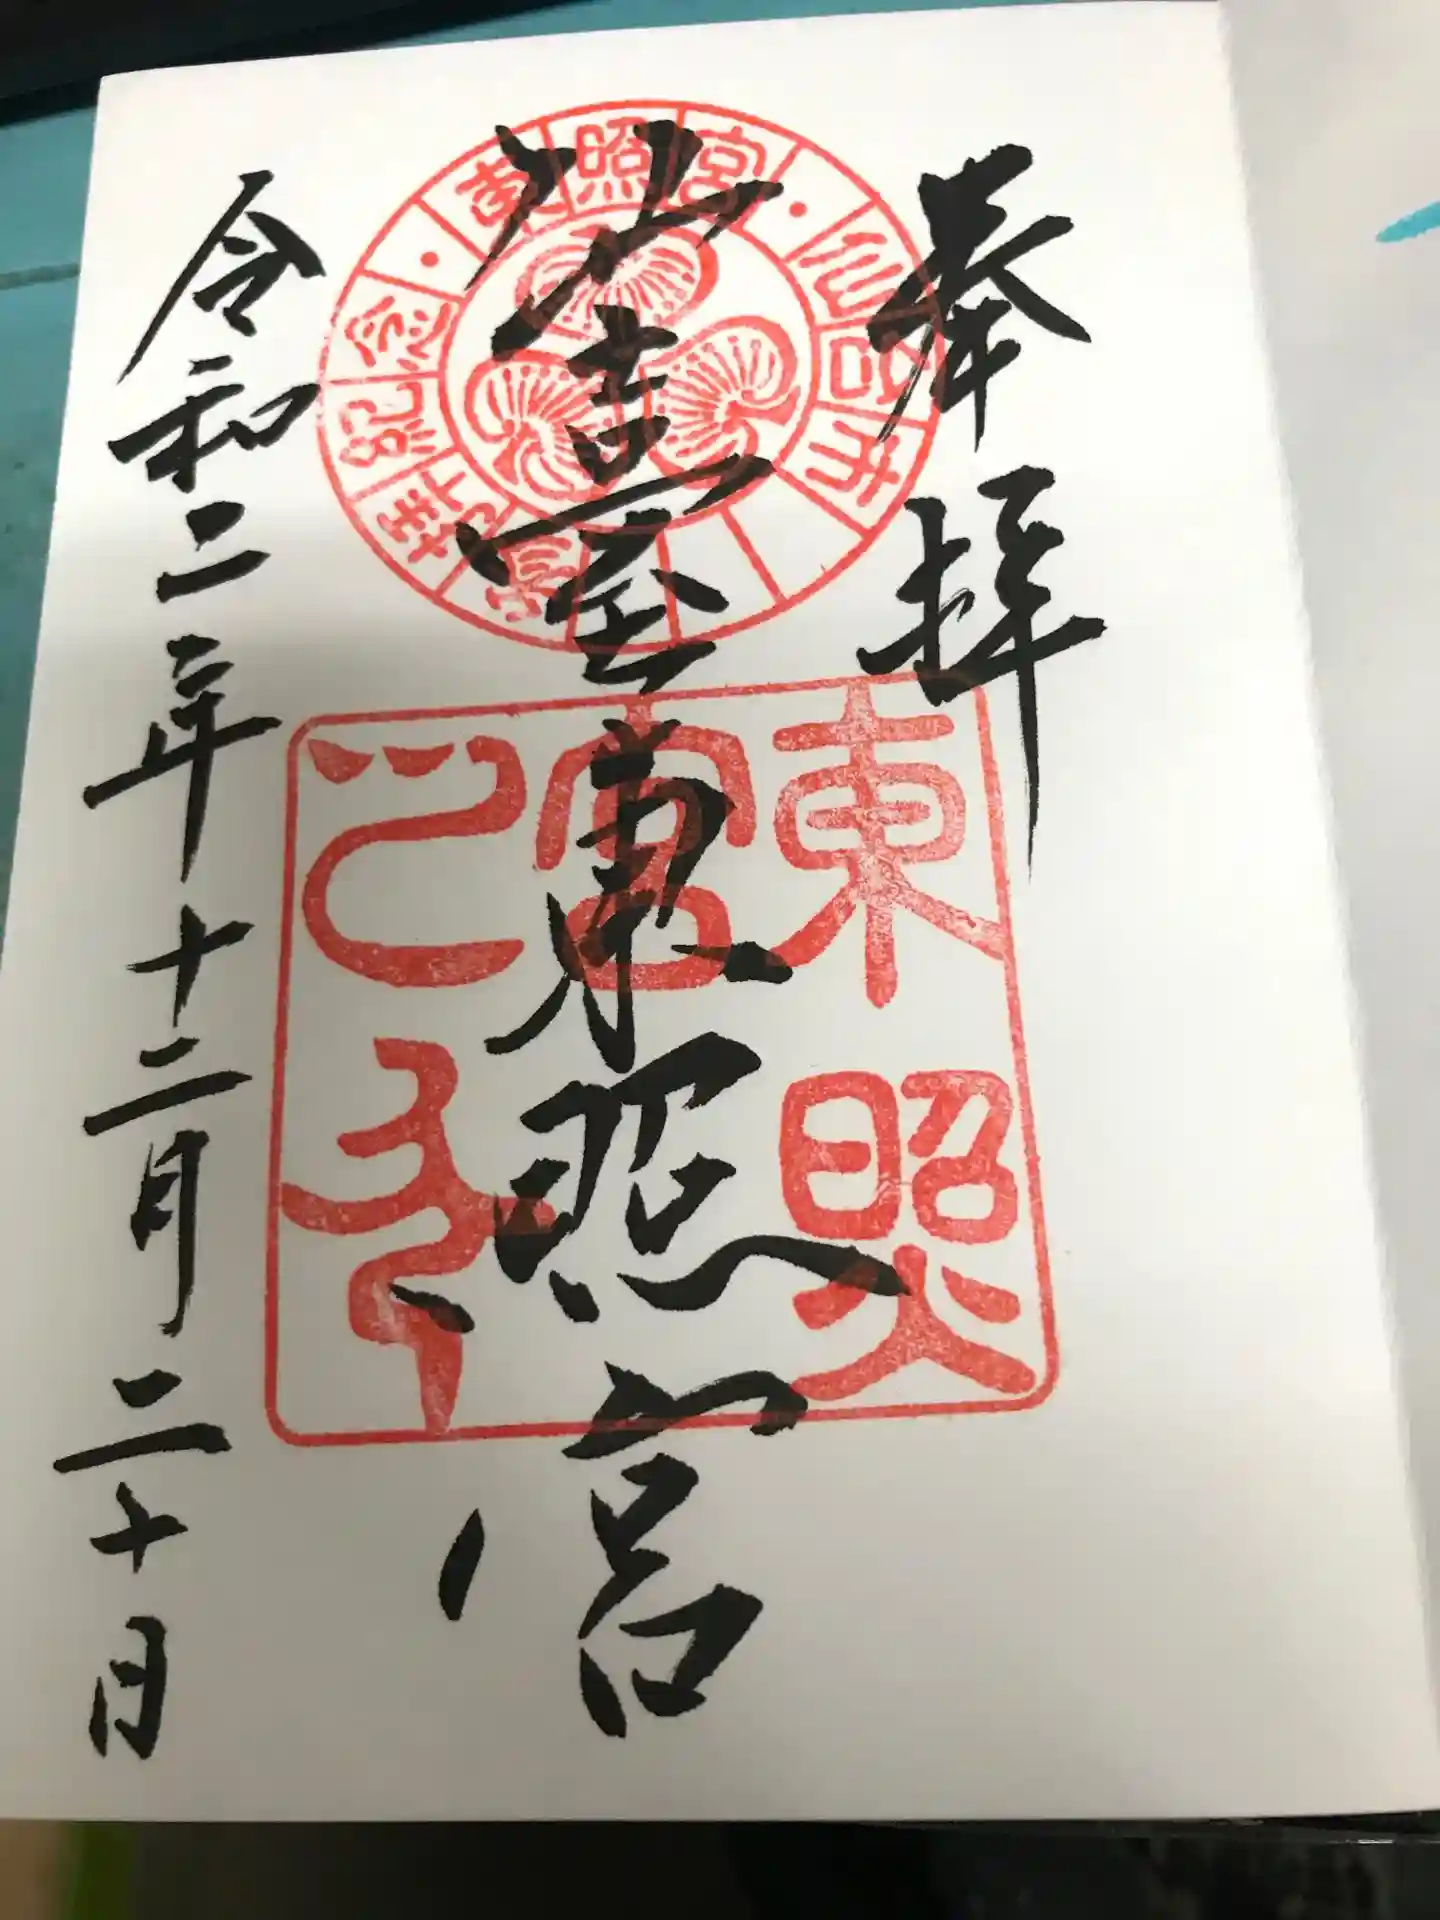 奉拝
仙臺東照宮
令和二年十二月二十日
東照宮・仙台市
参拝記念・
東照
宮
之印